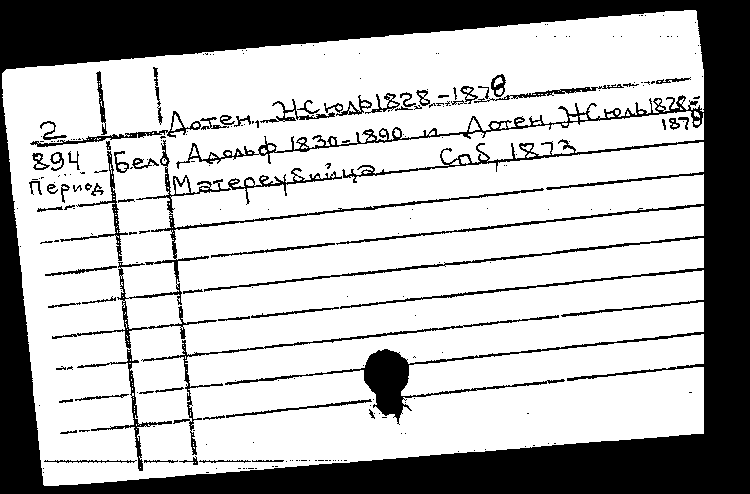 Дотен, Жюль 1828-1878
2
894 Бело, Адольф 1830-1890 и Дотен, Жюль 1828-1878
Период Матереубийца. Спб, 1873